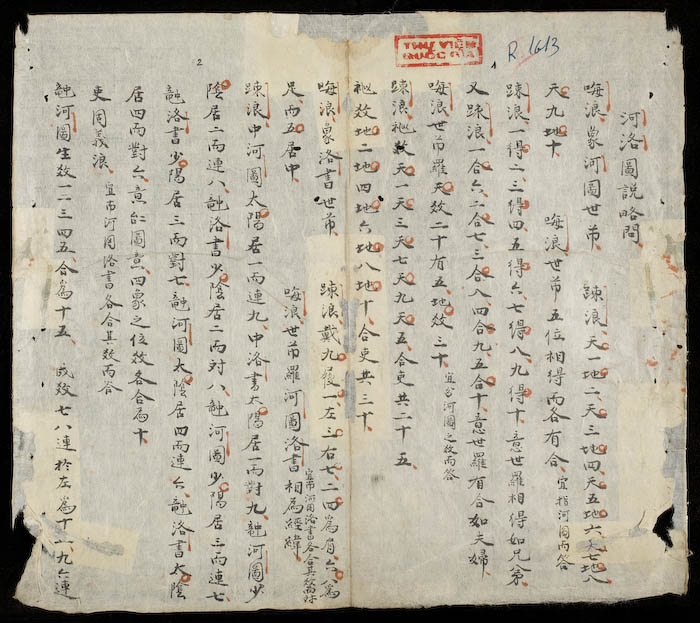 河洛圖說略問
嗨浪、象河圖世芇 踈浪、天一地二、天三地四、天五地六、天七地八
天九地十 嗨浪世芇五位相得而各有合 宜指河圖而答
踈浪、一得二、三得四、五得六、七得八、九得十、意世羅相得如兄弟、
又踈浪、一合六、二合七、三合八、四合九、五合十、意世羅有合如夫婦、
嗨浪世芇羅天效二十有五、地效三十 宜分河圖之效而答
踈浪、樞效天一天三天七天九天五、合吏共二十五、
樞效地二地四地六地八地十合吏共三十、
嗨浪、象洛書世芇、 踈浪戴九履一、左三右七、二四為肩、六八為
足、而五居中、 嗨浪世芇羅河圖洛書相為經緯 宜芇河圖洛書各合其效而踈
踈浪、中河圖太陽居一而連九、中洛書太陽居一而對九、融河圖少
陰居二而連八、融洛書少陰居二而対八、融河圖少陽居三而連七
融洛書少陽居三而對七、融河圖太陰居四而連六、融洛書太陰
居四而對六、意㐌圖意、四象之位效各合為十
吏固義浪、 宜芇河圖洛書各合其效而答
融河圖生效一二三四五、合為十五、 成效七八連於左為十、九六連
THƯ VIỆN
QUỐC GIA
R.1613
2